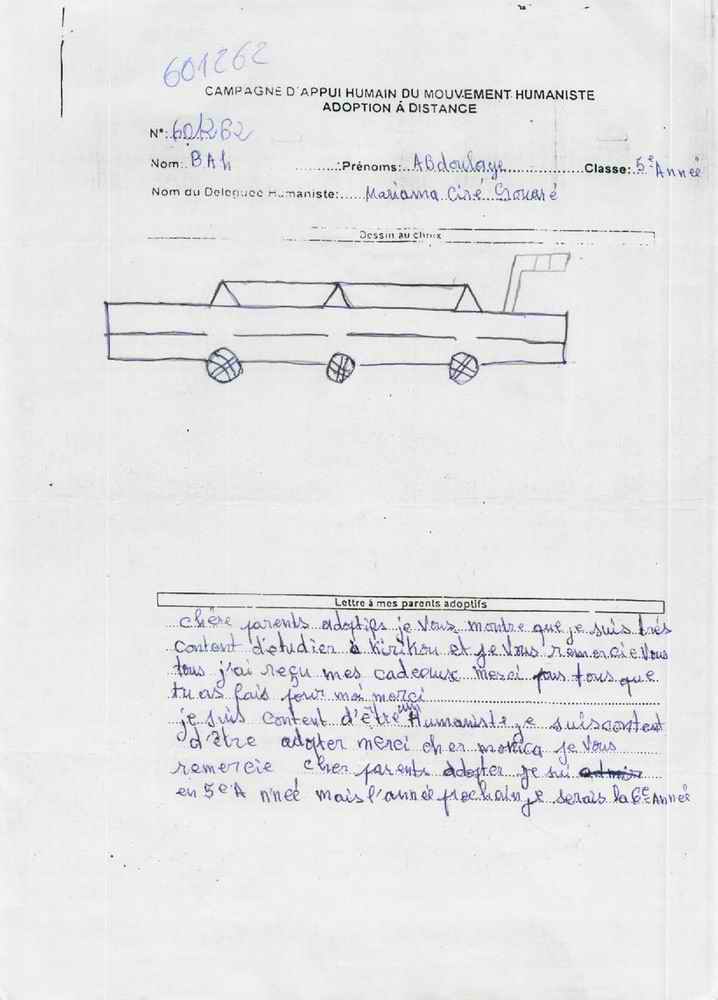 601262
CAMPAGNE D'APPUI HUMAIN DU MOUVEMENT HUMANISTE
ADOPTION Á DISTANCE
N°: 601262
Nom: BAh Prénoms: ABdoulaye Classe: 5e Année
Nom du Deleguee Humaniste: Mariama Ciré
Dessin au choix
Lettre à mes parents adoptifs
chère parents adoptifs je vous montre que je suis très
content d'etudier à Kirikou et je vous remercie vous
tous j'ai reçu mes cadeaux merci pour tous que
tu as fais pour moi merci
je suis content d'être un Humaniste je suis content
d'être adopter merci cher monica je vous
remercie cher parents adopter je sui
en 5e A nneé mais l'année prochain je serais la 6e Année